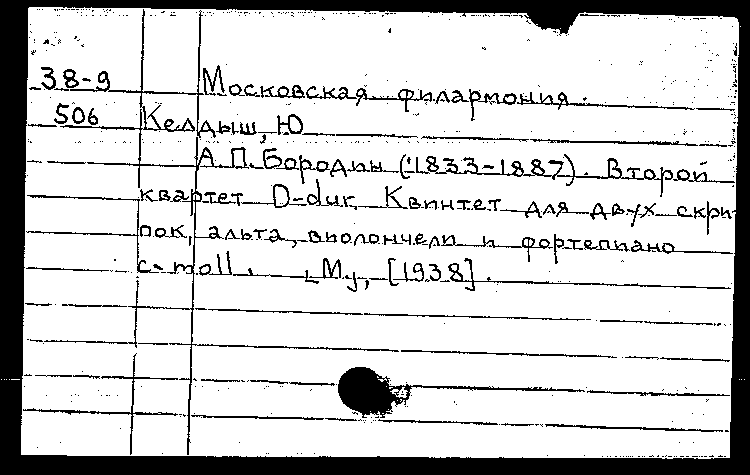 38-9 Московская филармония.
506 Келдыш, Ю
А. П. Бородин (1833-1887). Второй
квартет D-dur. Квинтет для двух скри-
пок, альта, виолончели и фортепиано
c-moll. [М], [1938].